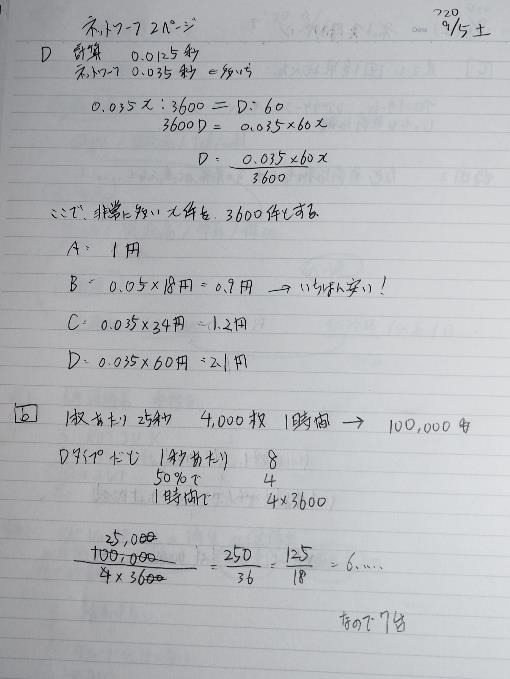 ネットワーク 2ページ
'20
9/5 土
D 計算 0.0125秒
ネットワーク 0.035秒 ←多い方
0.035x : 3600 = D : 60
3600D = 0.035×60x
D = 0.035×60x
3600
ここで、非常に多い x件を 3600件とする
A = 1円
B = 0.05×18円 = 0.9円 → いちばん安い!
C = 0.035×34円 = 1.2円
D = 0.035×60円 = 2.1円
b 1枚あたり 25秒 4,000枚 1時間 → 100,000秒
Dタイプだと 1秒あたり 8
50%で 4
1時間で 4×3600
25,000
100,000
4 × 3600 = 250/36 = 125/18 = 6.....
なので 7台